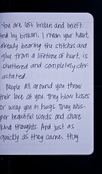 You are left broken and bereft
by brown. I mean your heart,
already bearing the stitches and
from a lifetime of hurt, is
shattered and completely
People all around you throw
their love at you. They blow kisses
or wrap you in hugs. They
beautiful words and share
kind thoughts. And just as
quickly as they came, they